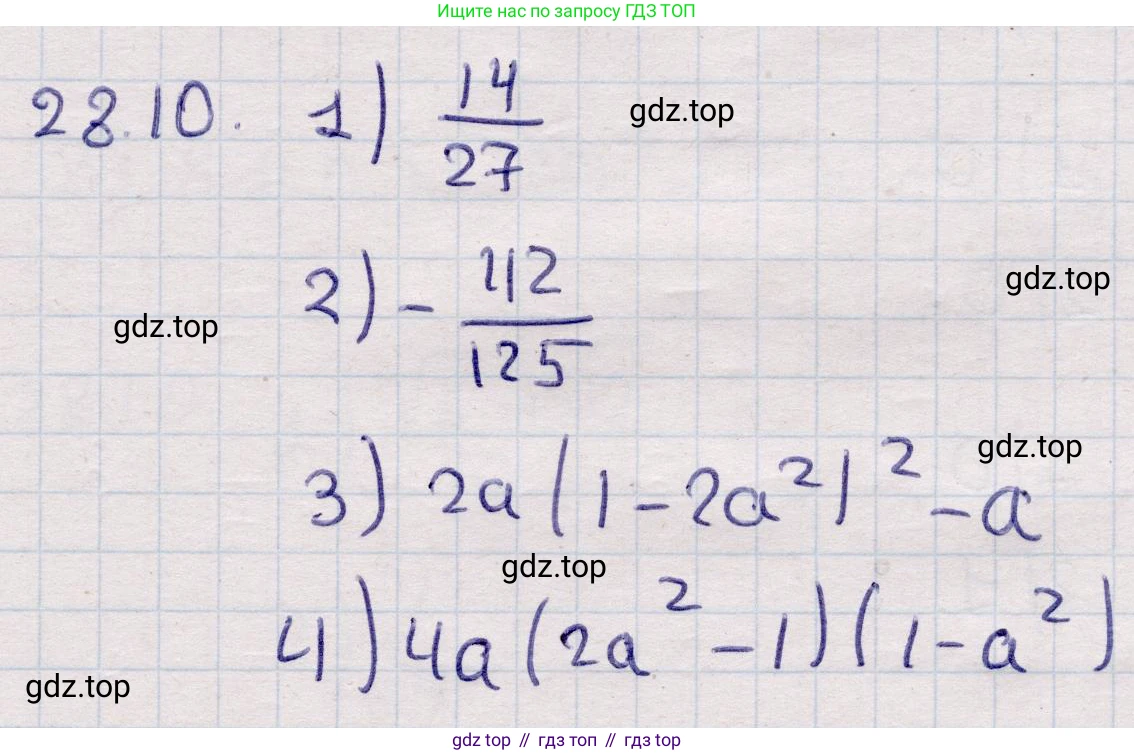 Ищите нас по запросу ГДЗ ТОП
28.10. 1) 14/27
gdz.top
2) - 42/125
gdz.top
gdz.top
3) 2a(1-2a²)² - a
gdz.top
gdz.top
4) 4a(2a² - 1)(1 - a²)
gdz.top
gdz top // гдз топ // гдз top